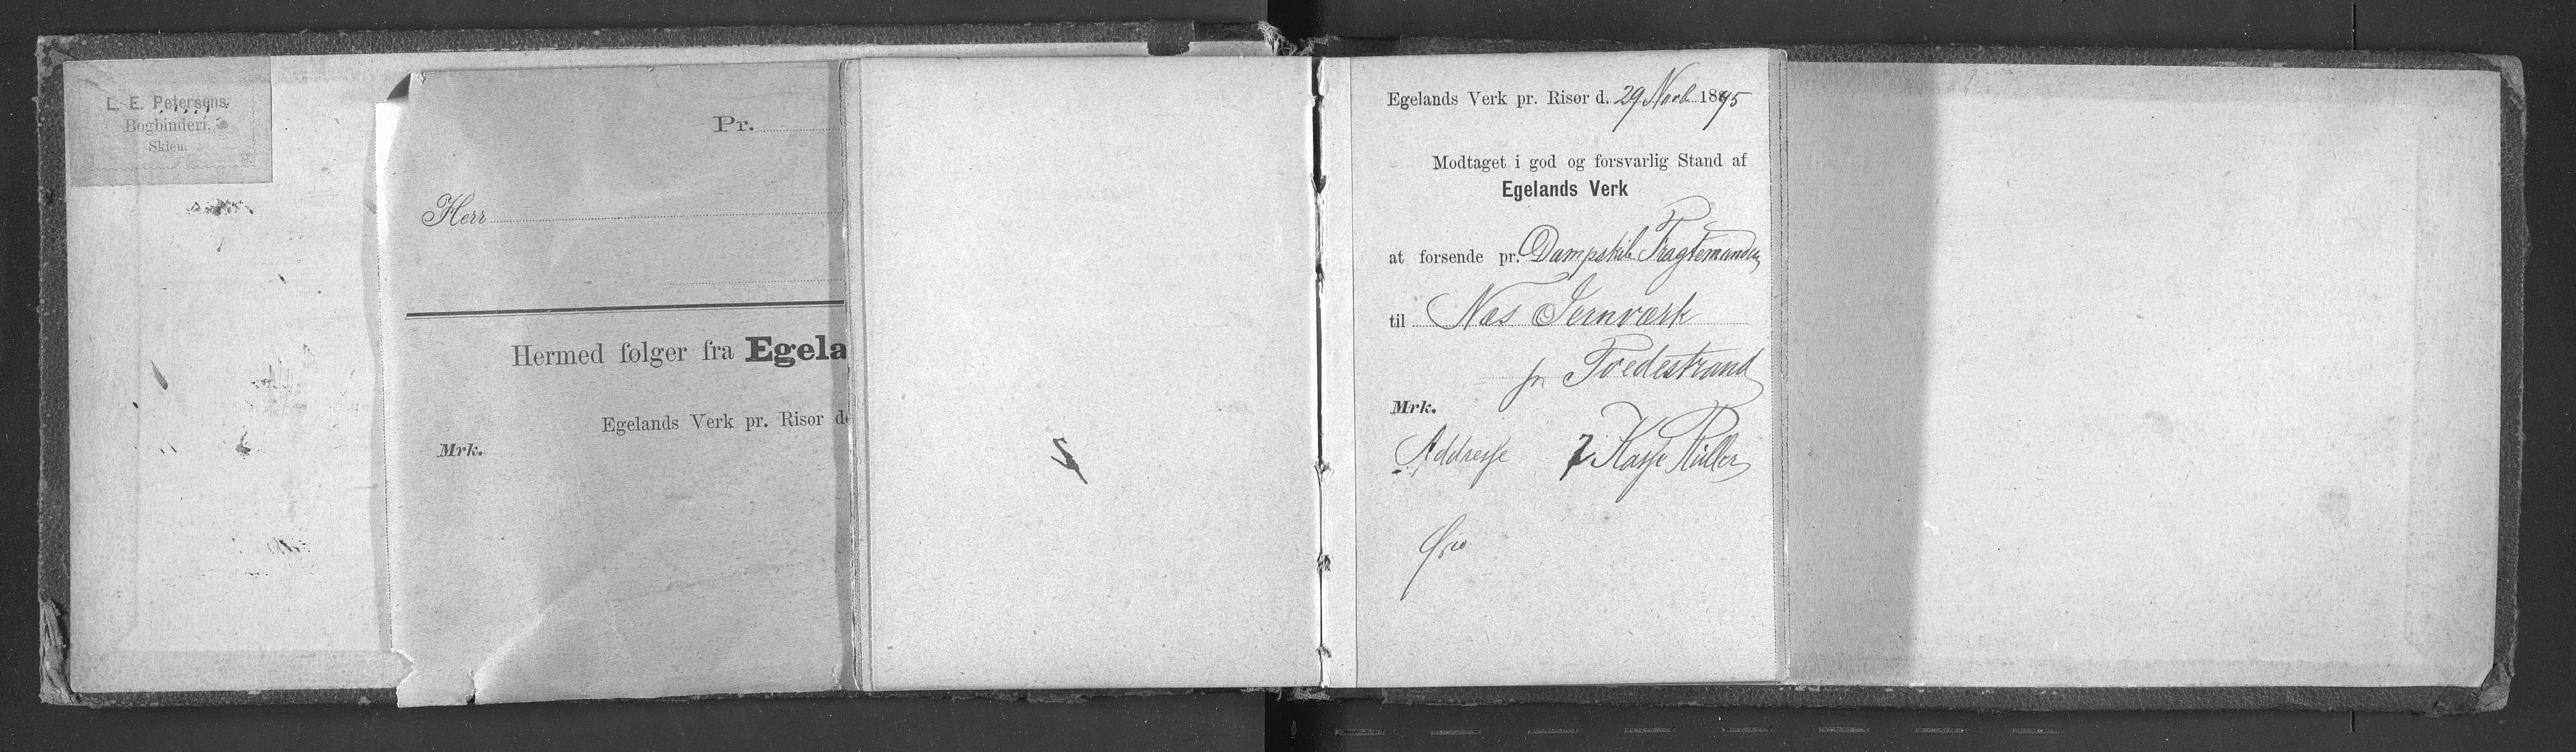 L. E. Petersens
Bogbinderi,
Skien.
Pr.
Herr
Hermed følger fra Egela
Egelands Verk pr. Risør d
Mrk.
Egelands Verk pr. Risør d. 29 Novb 1895
Modtaget i god og forsvarlig Stand af
Egelands Verk
at forsende pr. Dampskib Fragtemanden
til Næs Jernværk
pr Tvedestrand
Mrk.
Addresse 7 Kasse